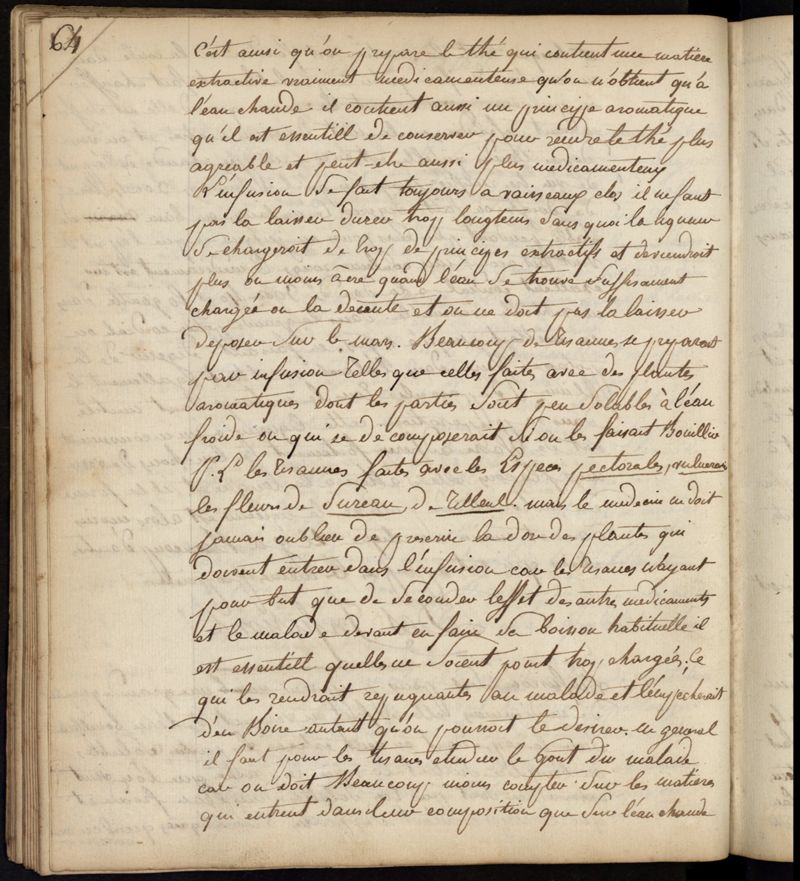 64
c'est ainsi qu'on prepare le thé qui contient une matiere
extractive vraiment medicamenteuse qu'on n'obtient qu'à
l'eau chaude il contient aussi un principe aromatique
qu'il est essentiell de conserver pour rendre le thé plus
agreable et peut-etre aussi plus medicamenteux
L'infusion se fait toujours a vaisseaux clos il ne faut
pas la laisser durer trop longtems sans quoi la liqueur
se chargeroit de trop de principes extractifs et deviendroit
plus ou moins âcre quand l'eau se trouve suffisament
chargée on la decante et on ne doit pas la laisser
deposer sur le marc. Beaucoup de Tisannes se preparent
par infusion Telles que celles faites avec des plantes
aromatiques dont les parties sont peu solubles à l'eau
froide ou qui se decomposerait si on les faisait Bouillir
P. Ex les Tisannes faites avec les Especes pectorales, vulneraires
les fleurs de Sureau, de Tilleul. mais le medecin ne doit
jamais oublier de prescrire la dose des plantes qui
doivent entrer dans l'infusion car les Tisanes n'ayant
pour but que de seconder l'effet des autres medicaments
et le malade devant en faire sa boisson habituelle il
est essentiell quelles ne soient point trop chargées. Ce
qui les rendrait repugnantes au malade et l'empêcherait
d'en Boire autant qu'on pourroit le desirer. en general
il faut pour les tisanes etudier le Gout du malade
car on doit Beaucoup moins compter sur les matieres
qui entrent dans leur composition que sur l'eau chaude